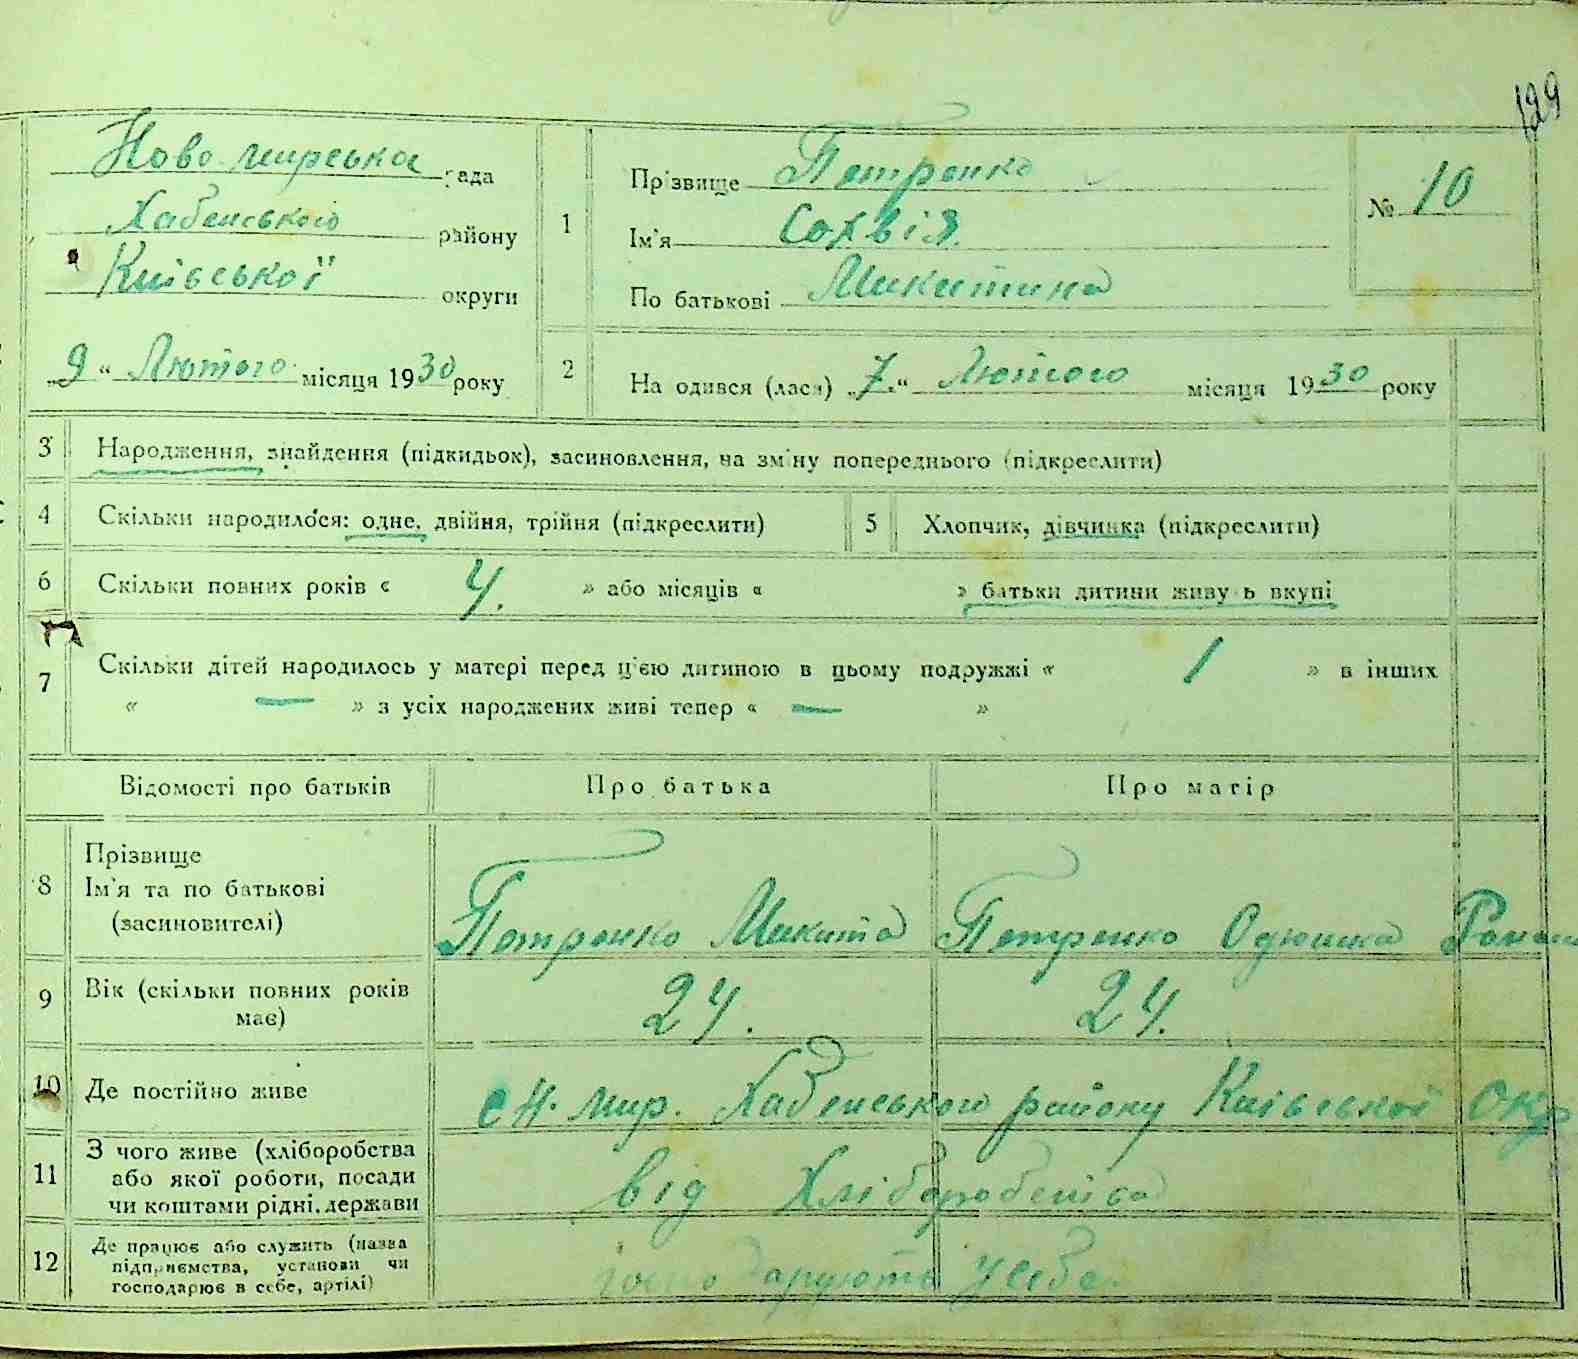 129
Ново мирська рада
Хабенського району
Київської округи
„9“ Лютого місяця 1930 року
1
Прізвище Петренко
Ім'я Сохвія.
По батькові Микитина
№ 10
2
На одився (лася) „7.“ Лютого місяця 1930 року
3 Народження, знайдення (підкидьок), засиновлення, на зміну попереднього (підкреслити)
4 Скільки народилося: одне, двійня, трійня (підкреслити)
5 Хлопчик, дівчинка (підкреслити)
6 Скільки повних років « 4. » або місяців « » батьки дитини живуть вкупі
7 Скільки дітей народилось у матері перед ц'єю дитиною в цьому подружжі « 1 » в інших
« — » з усіх народжених живі тепер « — »
Відомості про батьків Про батька Про матір
8 Прізвище
Ім'я та по батькові
(засиновителі)
Петренко Микита Петренко Одюшка
9 Вік (скільки повних років
має)
24. 24.
10 Де постійно живе с Н. Мир. Хабенського району Київської окр
11 З чого живе (хліборобства
або якої роботи, посади
чи коштами рідні, держави
від Хліборобства
12 Де працює або служить (назва
підприємства, установи чи
господарює в себе, артілі)
господарують у себе.